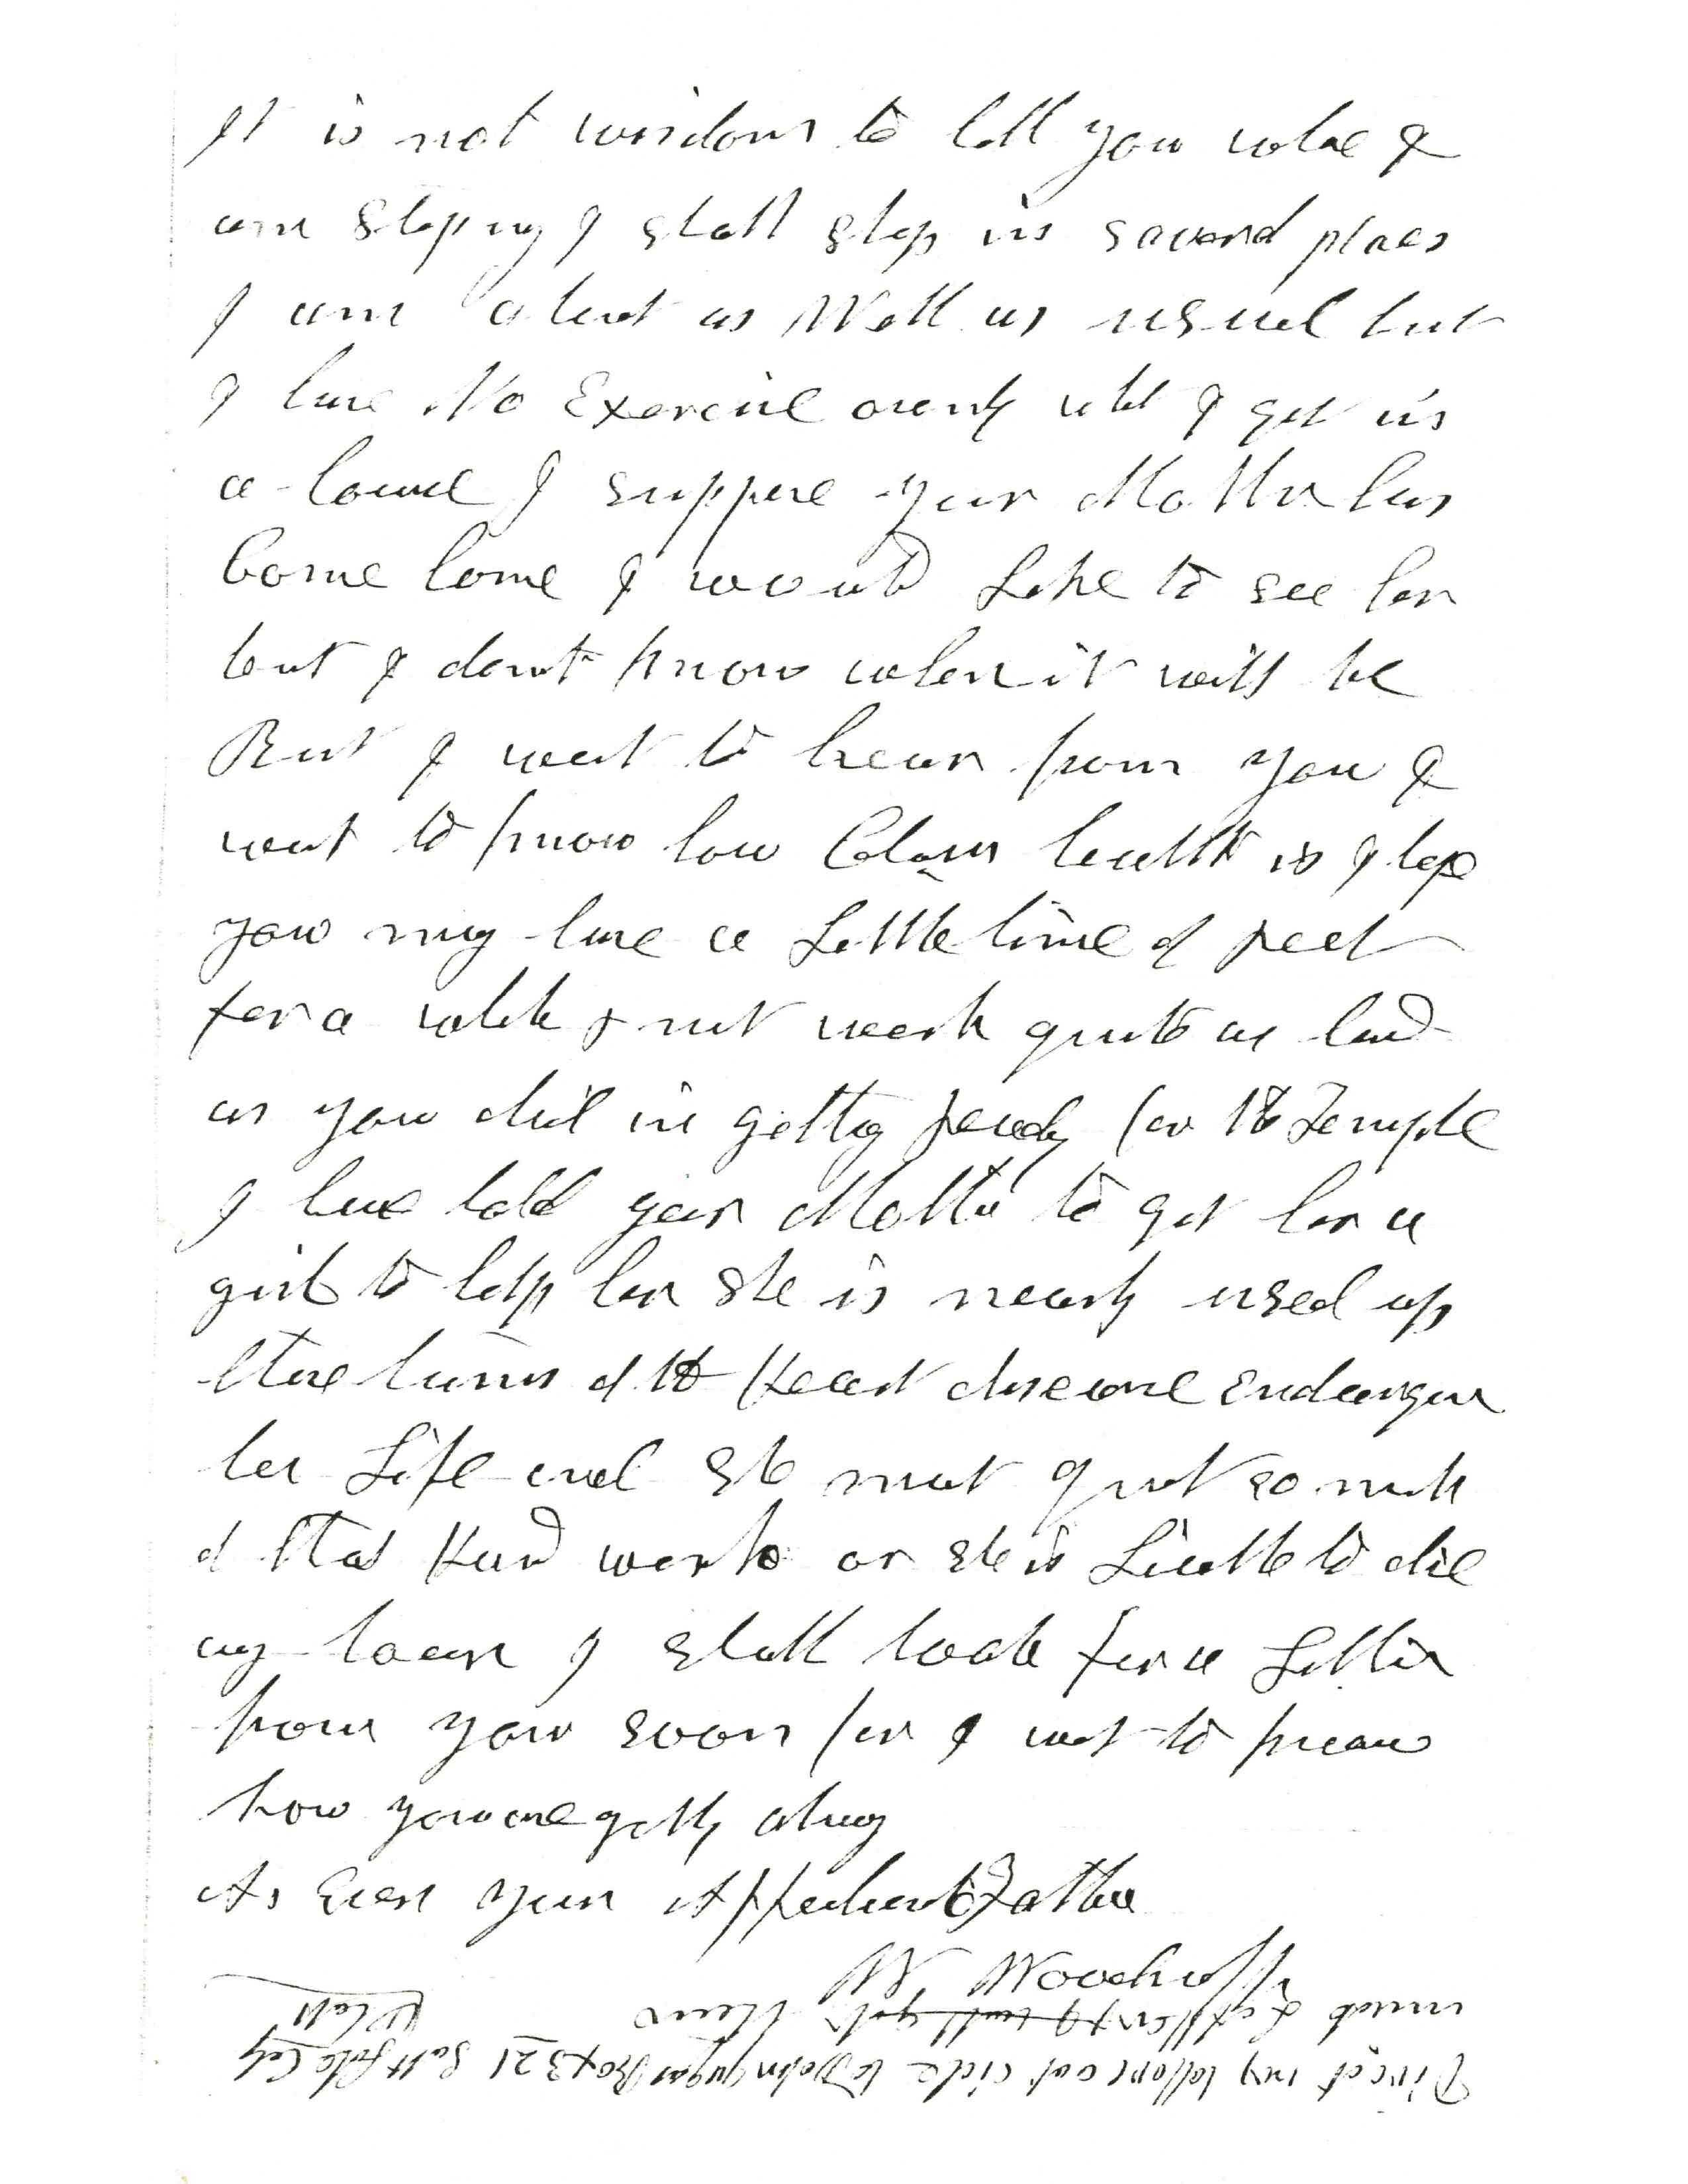 It is not wisdom to tell you whare I
am Stoping I shall stop in several places
I am about as Well as usual but
I have No Exercise ownly what I get in
a house I suppose your Mother has
Come home I would Like to see her
but I dont know when it will be
But I want to hear from you I
want to know how Claras health is I hope
you may have a Little time of rest
for a while & not work quite as hard
as you did in getting ready for the Temple
I have told your Mother to get her a
girl to help her She is nearly used up
those turns of the Heart disease endanger
her Life and She must quit so much
of that Hard work or she is Liable to die
any hour I shall look for a Letter
from you soon for I want to know
how you are getting along
As Ever your Affectionate Father
W Woodruff
Direct my letters out side to John Jaques Box 321 Salt Lake City
Utah
inside L Allen & I will get them